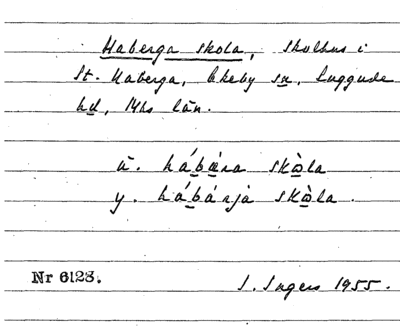 Haberga skola, skolhus i
St. Haberga, Ekeby sn, Luggude
hd, Mhs län.
ä. hábära skòla
y. hábárjà skòla.
Nr 6128. I. Ingers 1955.